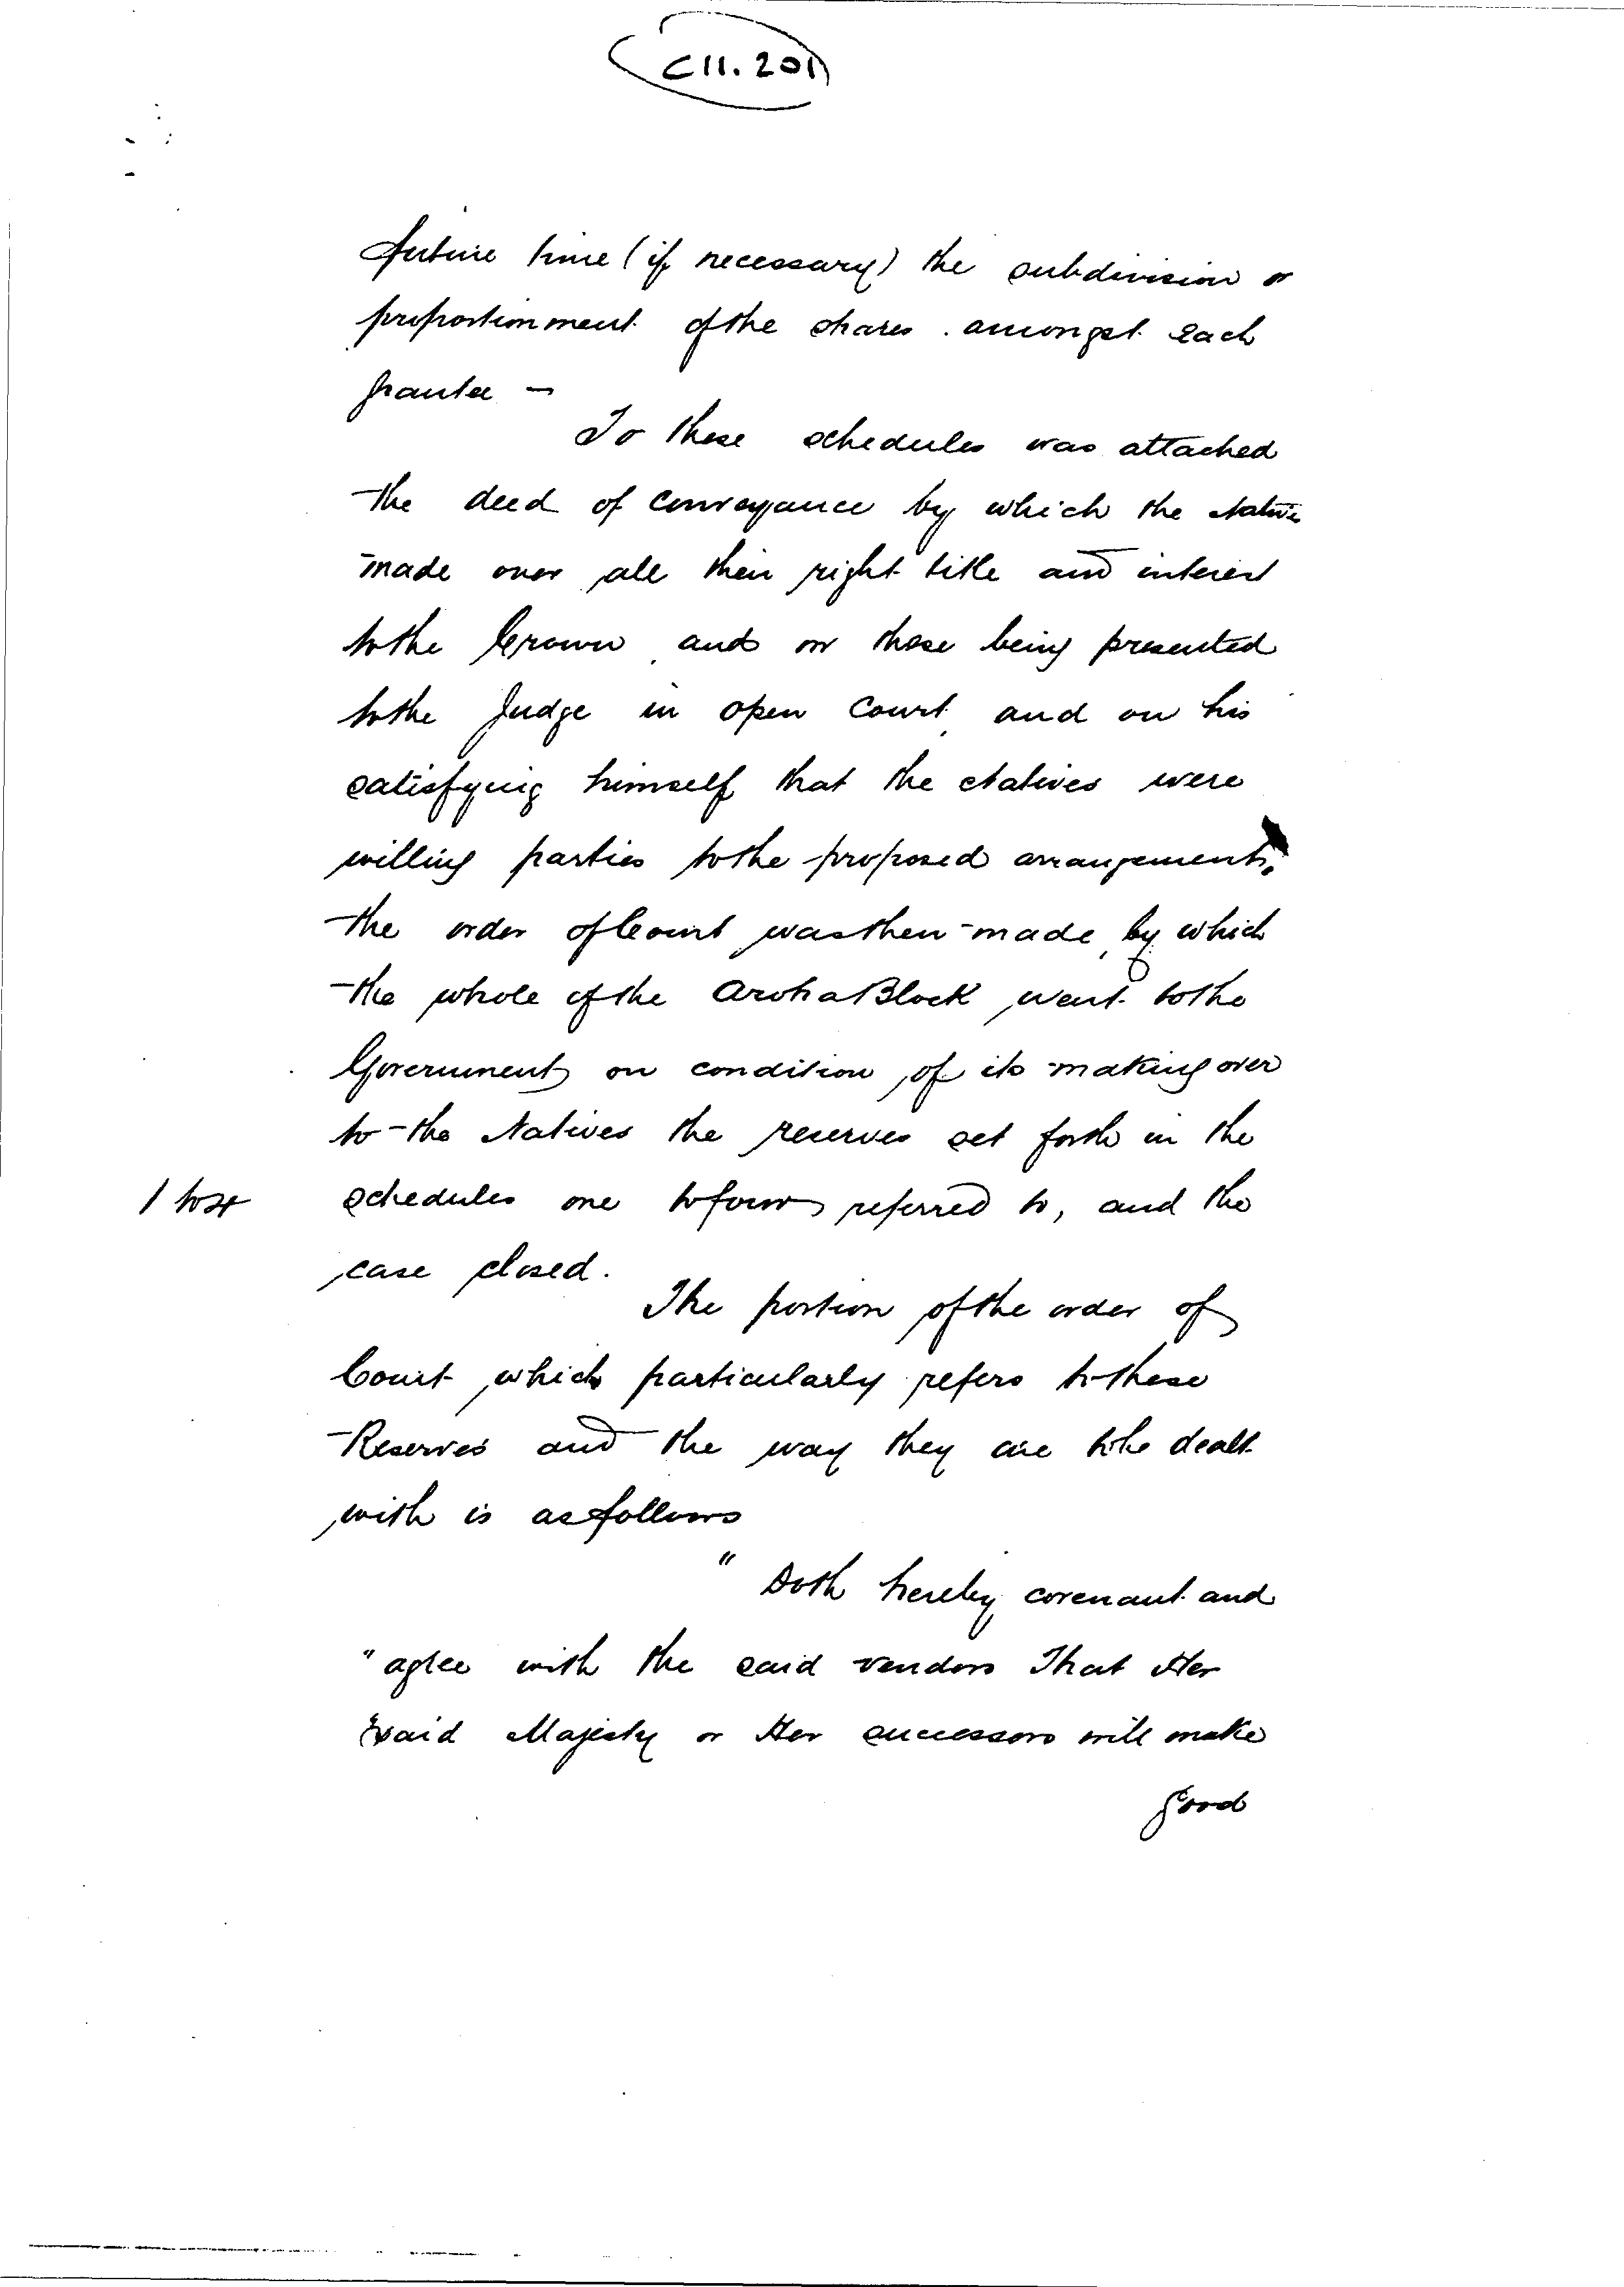 C11.201
future time (if necessary) the subdivision or
proportionment of the shares amongst each
grantee —
To these schedules was attached
the deed of conveyance by which the Natives
made over all their right title and interest
to the Crown and on these being presented
to the Judge in open Court and on his
satisfying himself that the Natives were
willing parties to the proposed arrangements.
the order of Court was then made, by which
the whole of the Aroha Block went to the
Government on condition of its making over
to the Natives the reserves set forth in the
1 to 4 schedules one to four referred to, and the
case closed.
The portion of the order of
Court which particularly refers to these
Reserves and the way they are to be dealt
with is as follows
" Doth hereby covenant and
" agree with the said vendors That Her
" said Majesty or Her successors will make
good